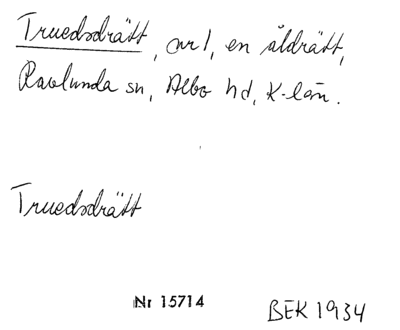 Truedsdrätt, nr 1, en åldrätt,
Ravlunda sn, Albo hd, K-län.
Truedsdrätt
Nr 15714
BEK 1934